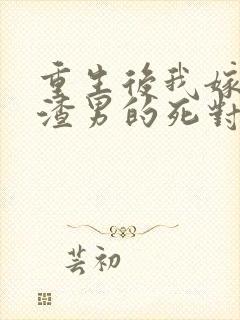 重生後我嫁
渣男的死對
芸初